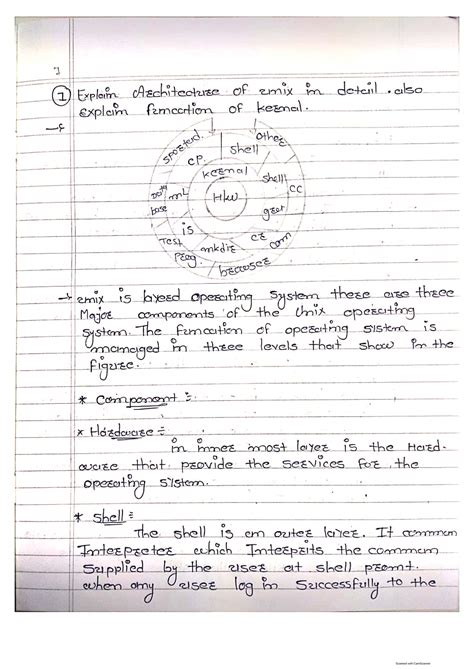 7
① Explain Architecture of unix in detail. also
explain function of kernal.
→
other
shell
cp
kernal
shell
cc
data
base
mL
H/w
is
Test
mkdir
com
Prog.
browser
→ unix is layred operating system there are three
Major components of the Unix operating
system. The function of operating sistem is
managed in three levels that show in the
figure.
* Component :
× Hardware :
in inner most layer is the Hard-
ware that provide the services for the
operating system.
* Shell :
The shell is an outer layer. It comman
Interpreter which Interprits the comman
Supplied by the user at shell promt.
when any user log in Successfully to the
Scanned with CamScanner